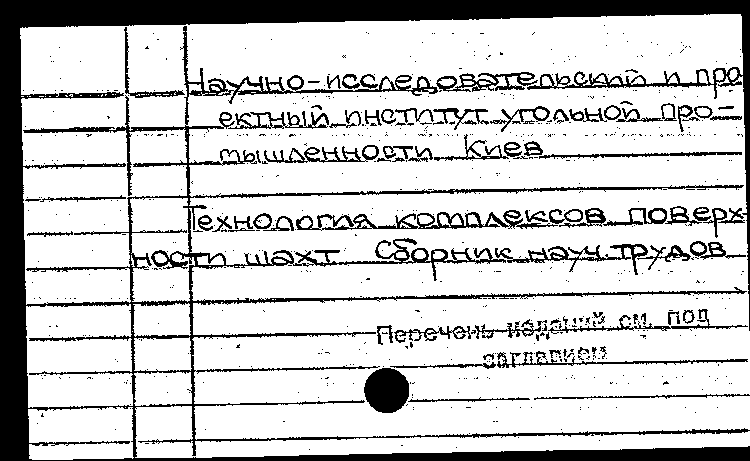 Научно-исследовательский и про
ектный институт угольной про-
мышленности Киев
Технология комплексов поверх
ности шахт Сборник науч. трудов
Перечень изданий см. под
заглавием